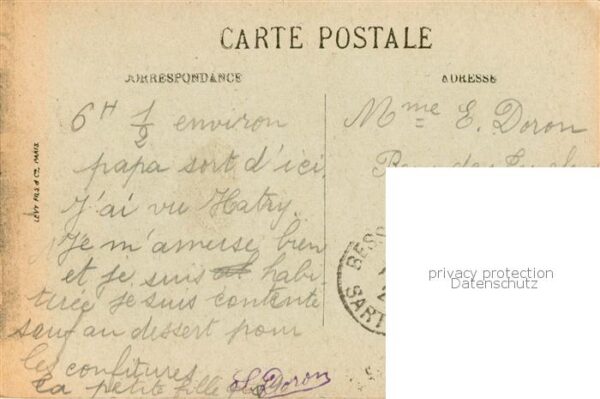 CARTE POSTALE
CORRESPONDANCE
ADRESSE
6H 1/2 environ
papa sort d'ici
J'ai vu Hatry.
Je m'amuse bien
et je suis habi-
tuée je suis contente
sauf au dessert pour
les confitures
ta petite fille
Doron
Mme E. Doron
LÉVY FILS & Cie, PARIS
BESS
SART
privacy protection
Datenschutz